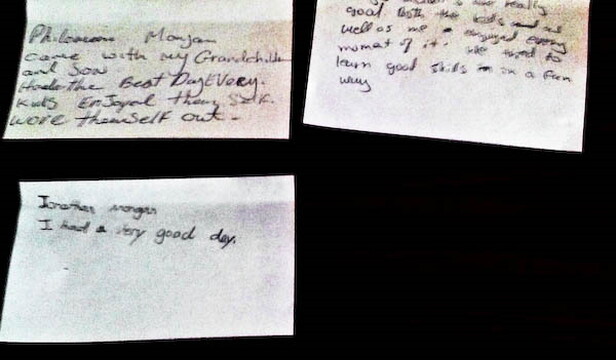 Philomena Morgan
came with my Grandchildren
and Son
Had the Best Day Every.
Kids Enjoyed them Self.
wore themself out -
really
good both the kids and as
well as me enjoyed every
moment of it. We used to
learn good skills in a fun
way
Jonathan Morgan
I had a very good day.